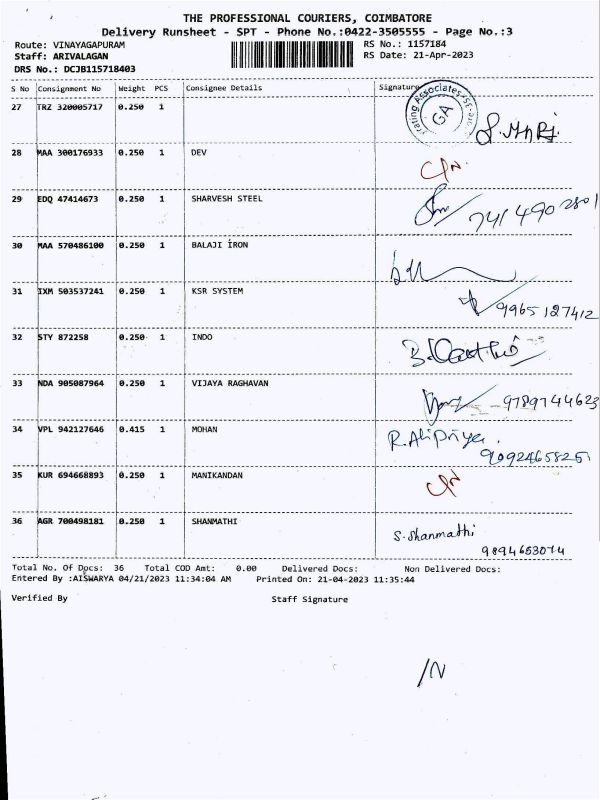 THE PROFESSIONAL COURIERS, COIMBATORE
Delivery Runsheet - SPT - Phone No.:0422-3505555 - Page No.:3
Route: VINAYAGAPURAM RS No.: 1157184
Staff: ARIVALAGAN RS Date: 21-Apr-2023
DRS No.: DCJB115718403
S No Consignment No Weight PCS Consignee Details Signature
27 TRZ 320005717 0.250 1
GA
28 MAA 300176933 0.250 1 DEV
29 EDQ 47414673 0.250 1 SHARVESH STEEL
7414902801
30 MAA 570486100 0.250 1 BALAJI İRON
31 IXM 503537241 0.250 1 KSR SYSTEM
9965127412
32 STY 872258 0.250 1 INDO
33 NDA 905087964 0.250 1 VIJAYA RAGHAVAN
9789744623
34 VPL 942127646 0.415 1 MOHAN
90924658251
35 KUR 694668893 0.250 1 MANIKANDAN
36 AGR 700498181 0.250 1 SHANMATHI S. Shanmathi
9894653074
Total No. Of Docs: 36 Total COD Amt: 0.00 Delivered Docs: Non Delivered Docs:
Entered By :AISWARYA 04/21/2023 11:34:04 AM Printed On: 21-04-2023 11:35:44
Verified By Staff Signature
/N